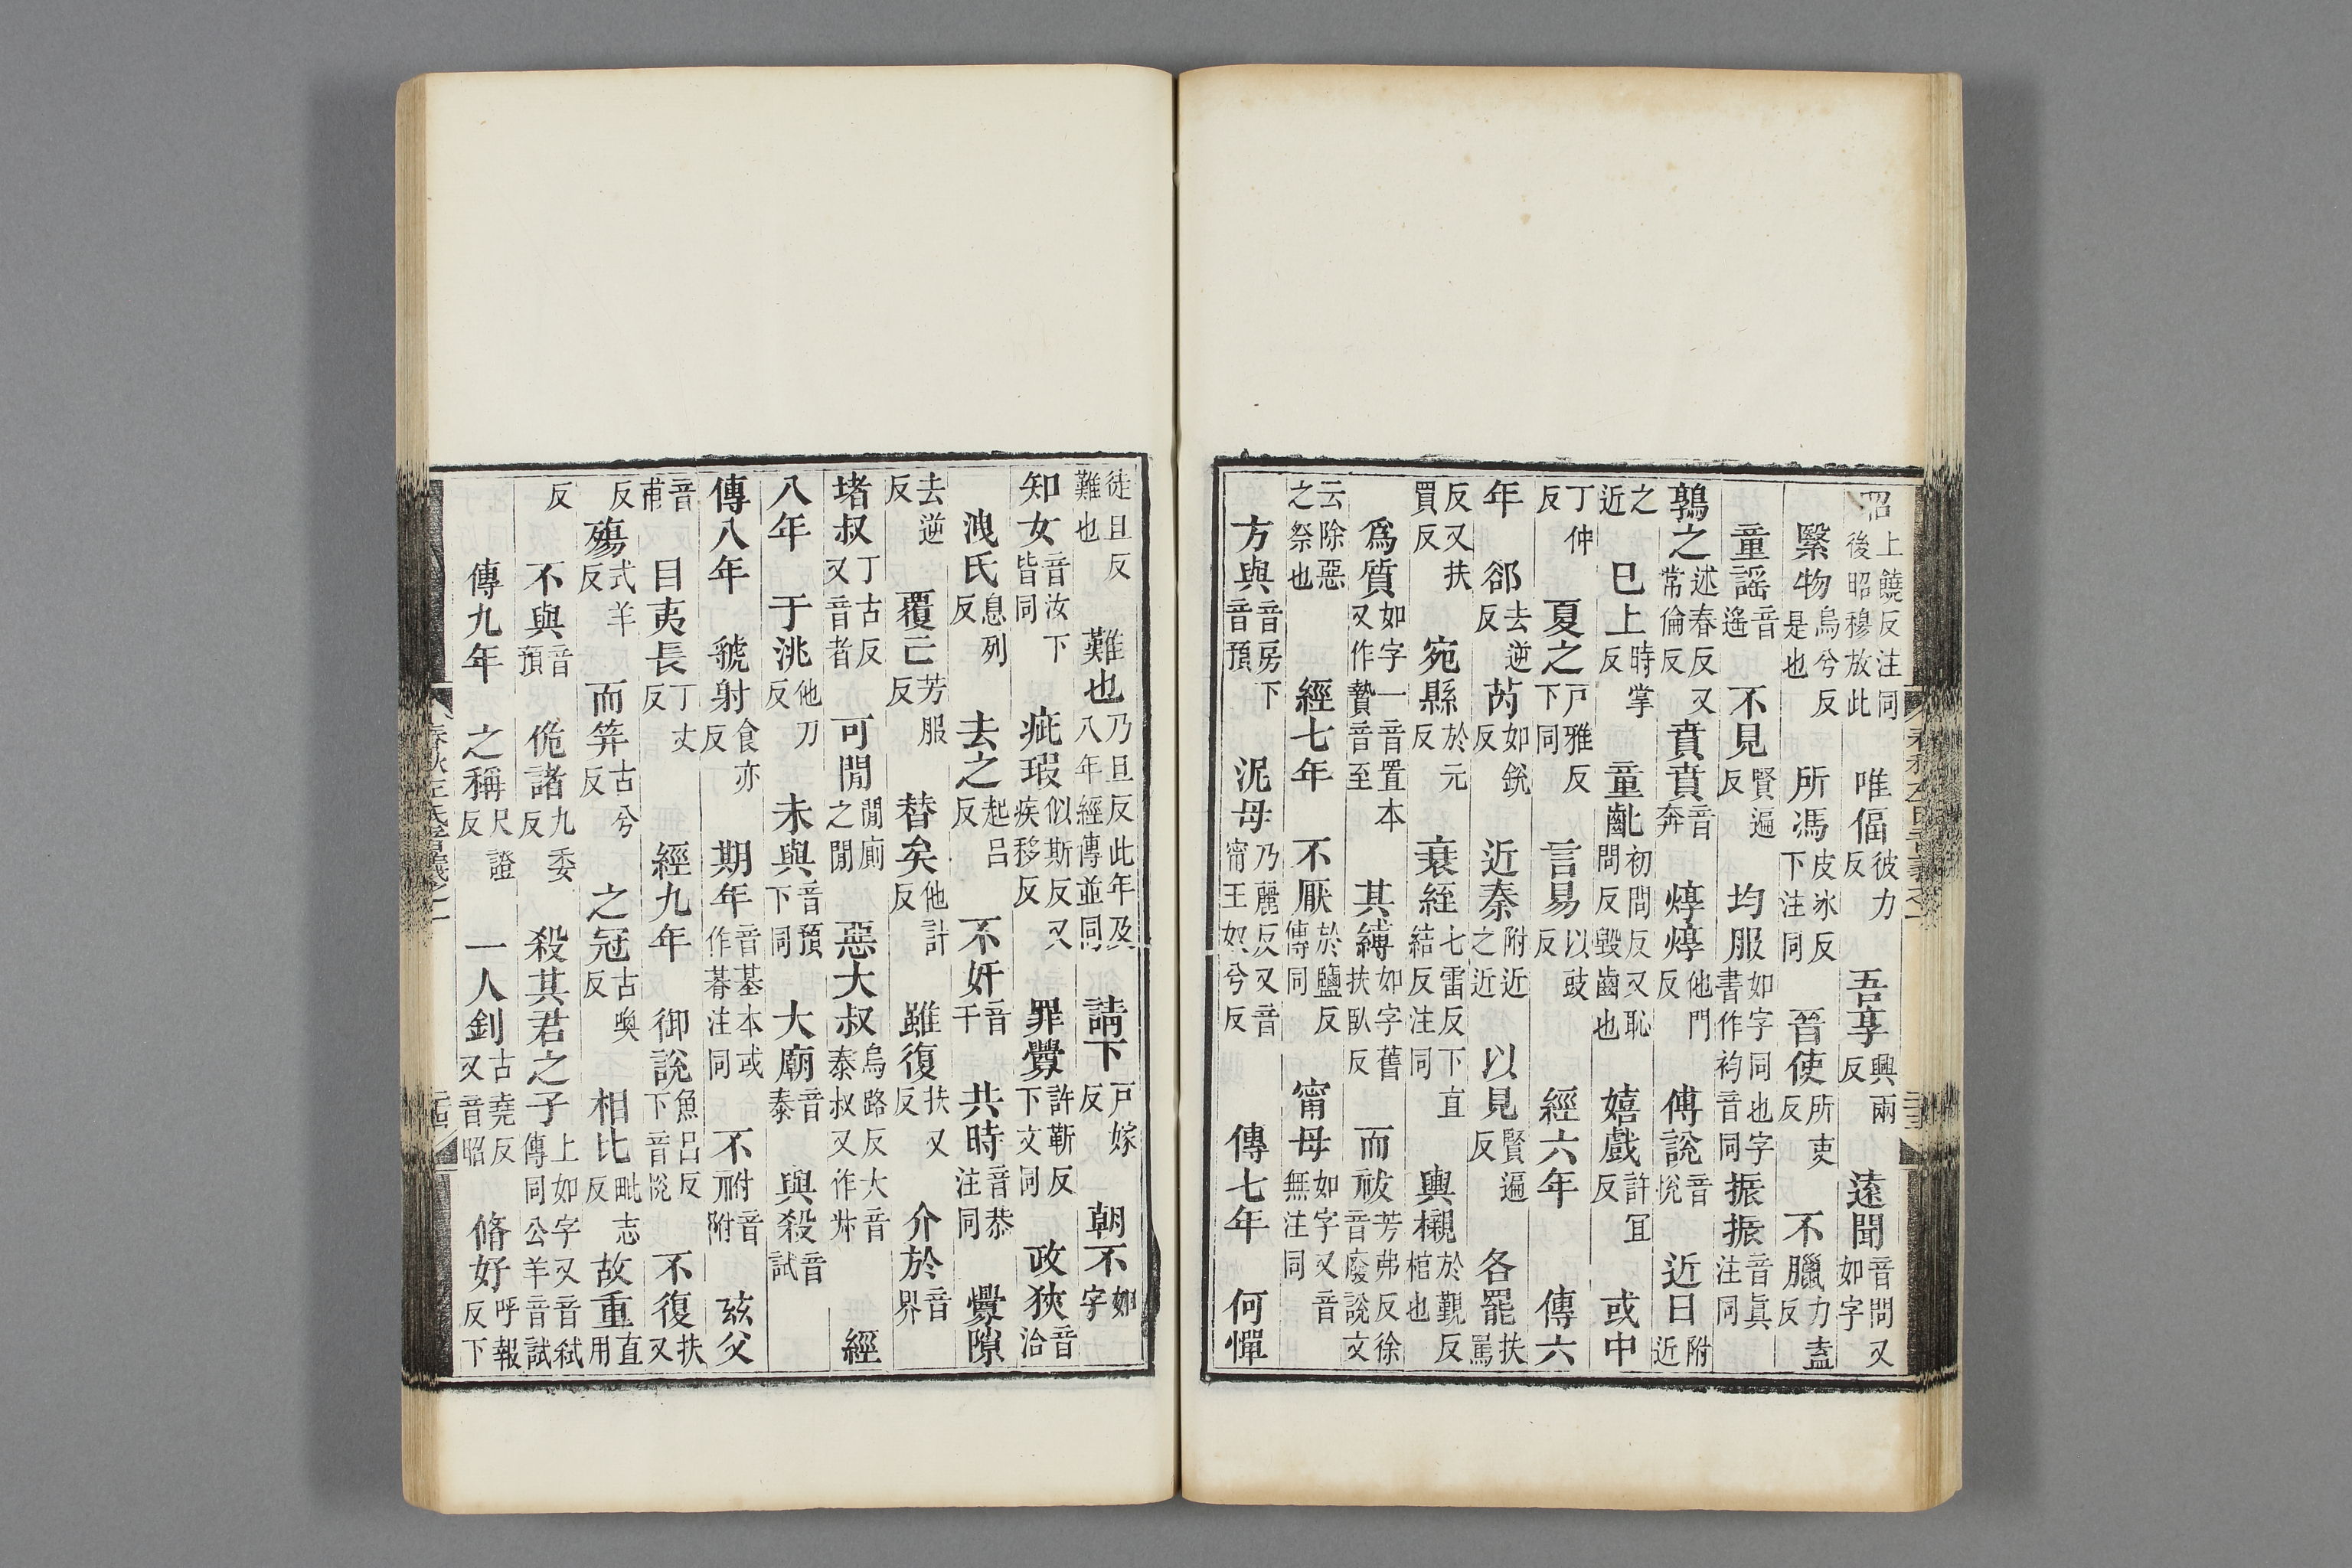 昭上饒反注同後昭穆放此 唯偪彼力反 吾享興兩反 遠聞音問又如字
繄物烏兮反是也 所馮皮冰反下注同 晉使所吏反 不臘力盍反
童謠音遙 不見賢遍反 均服如字同也字書作袀音同 振振音真注同
鶉之述春反又常倫反 賁賁音奔 焞焞他門反 傅說音悅 近日附近
之近 巳上時掌反 童齔初問反又恥問反毀齒也 嬉戲許宜反 或中
丁仲反 夏之戸雅反下同 言易以豉反 經六年 傳六
年 郤去逆反 芮如銳反 近秦附近之近 以見賢遍反 各罷扶罵
反又扶買反 宛縣於元反 衰絰七雷反下直結反注同 輿櫬於覲反棺也
為質如字一音置本又作贄音至 其縛如字舊扶臥反 而祓芳弗反徐音廢說文
云除惡之祭也 經七年 不厭於鹽反傳同 甯母如字又音無注同
方與音房下音預 泥母乃麗反又音甯王奴兮反 傳七年 何憚
徒旦反難也 難也乃旦反此年及八年經傳並同 請下戸嫁反 朝不如字
知女音汝下皆同 疵瑕似斯反又疾移反 罪釁許靳反下文同 政狹音洽
洩氏息列反 去之起呂反 不奸音干 共時音恭注同 釁隙
去逆反 覆亡芳服反 替矣他計反 雖復扶又反 介於音界
堵叔丁古反又音者 可閒閒廁之閒 惡大叔烏路反大音泰叔又作尗 經
八年 于洮他刀反 未與音預下同 大廟音泰 與殺音試
傳八年 虢射食亦反 期年音基本或作朞注同 不祔音附 茲父
音甫 目夷長丁丈反 經九年 御說魚呂反下音悅 不復扶又
反 殤式羊反 而筓古兮反 之冠古喚反 相比毗志反 故重直用
反 不與音預 佹諸九委反 殺其君之子上如字又音弒傳同公羊音試
傳九年 之稱尺證反 一人釗古堯反又音昭 脩好呼報反下